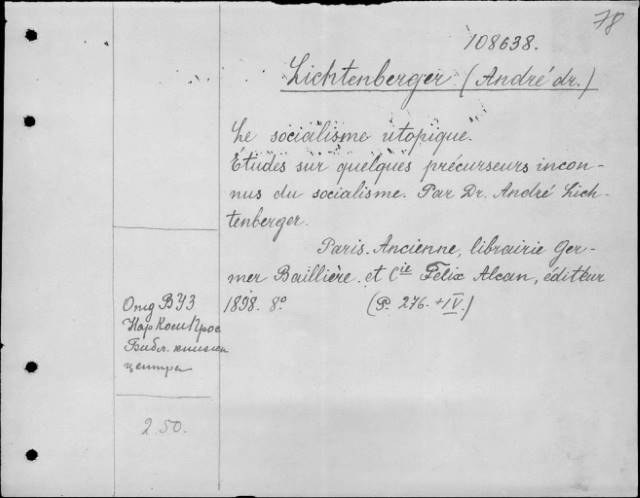 78
108638.
Lichtenberger (André dr.)
Le socialisme utopique.
Études sur quelques précurseurs incon-
nus du socialisme. Par Dr. André Lich-
tenberger.
Paris. Ancienne, librairie Ger-
mer Baillière et Cie Felix Alcan, éditeur
1898. 8° (P. 276. + IV.)
ВУЗ
НарКомПрос
Библ. 
центра
2.50.